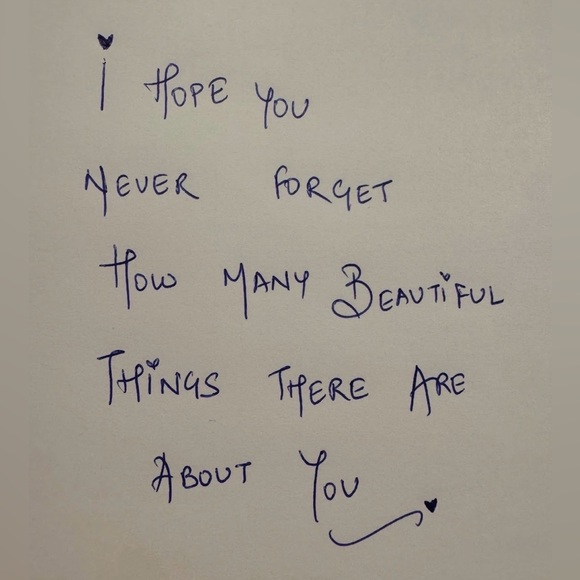 I HOPE YOU
NEVER FORGET
HOW MANY BEAUTiFUL
THiNGS THERE ARE
ABOUT YOU